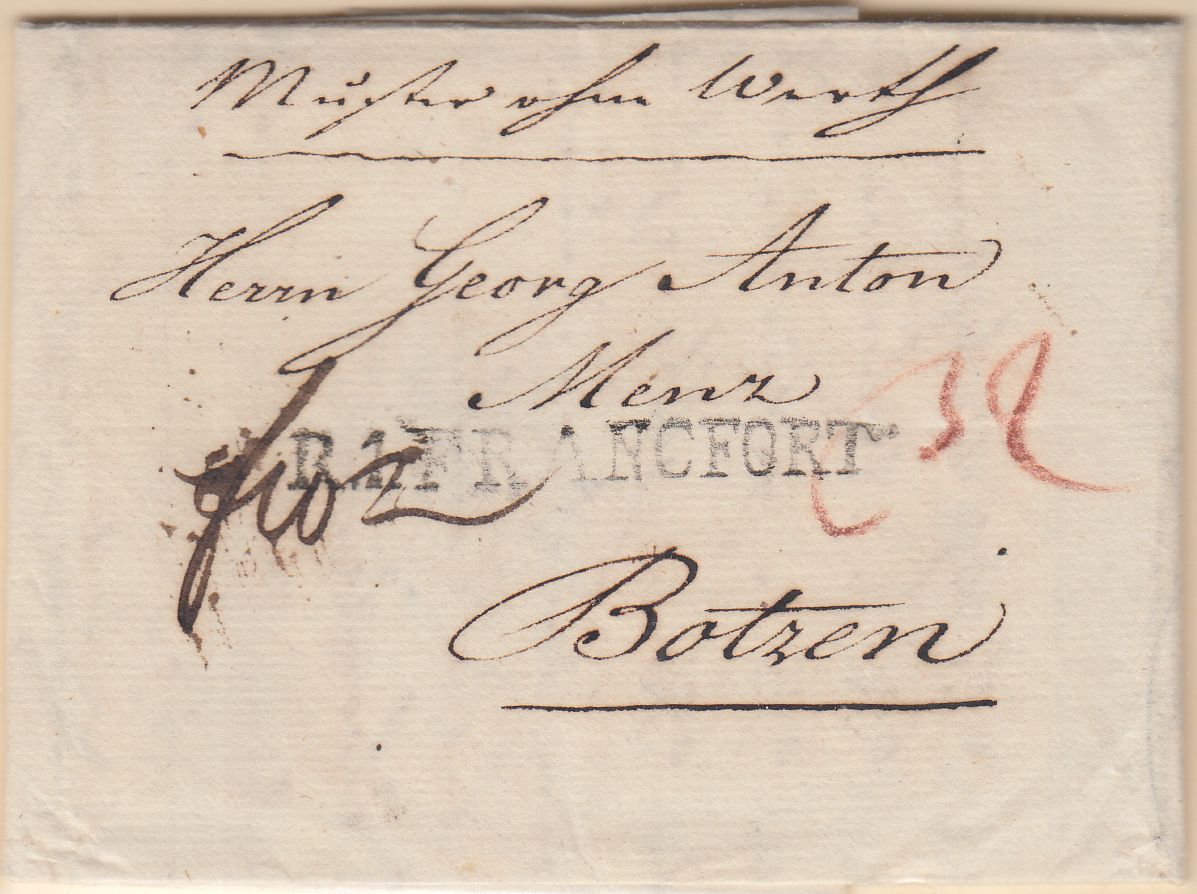 Muster ohne Werth
Herrn Georg Anton
Menz
R.1.FRANCFORT
Botzen